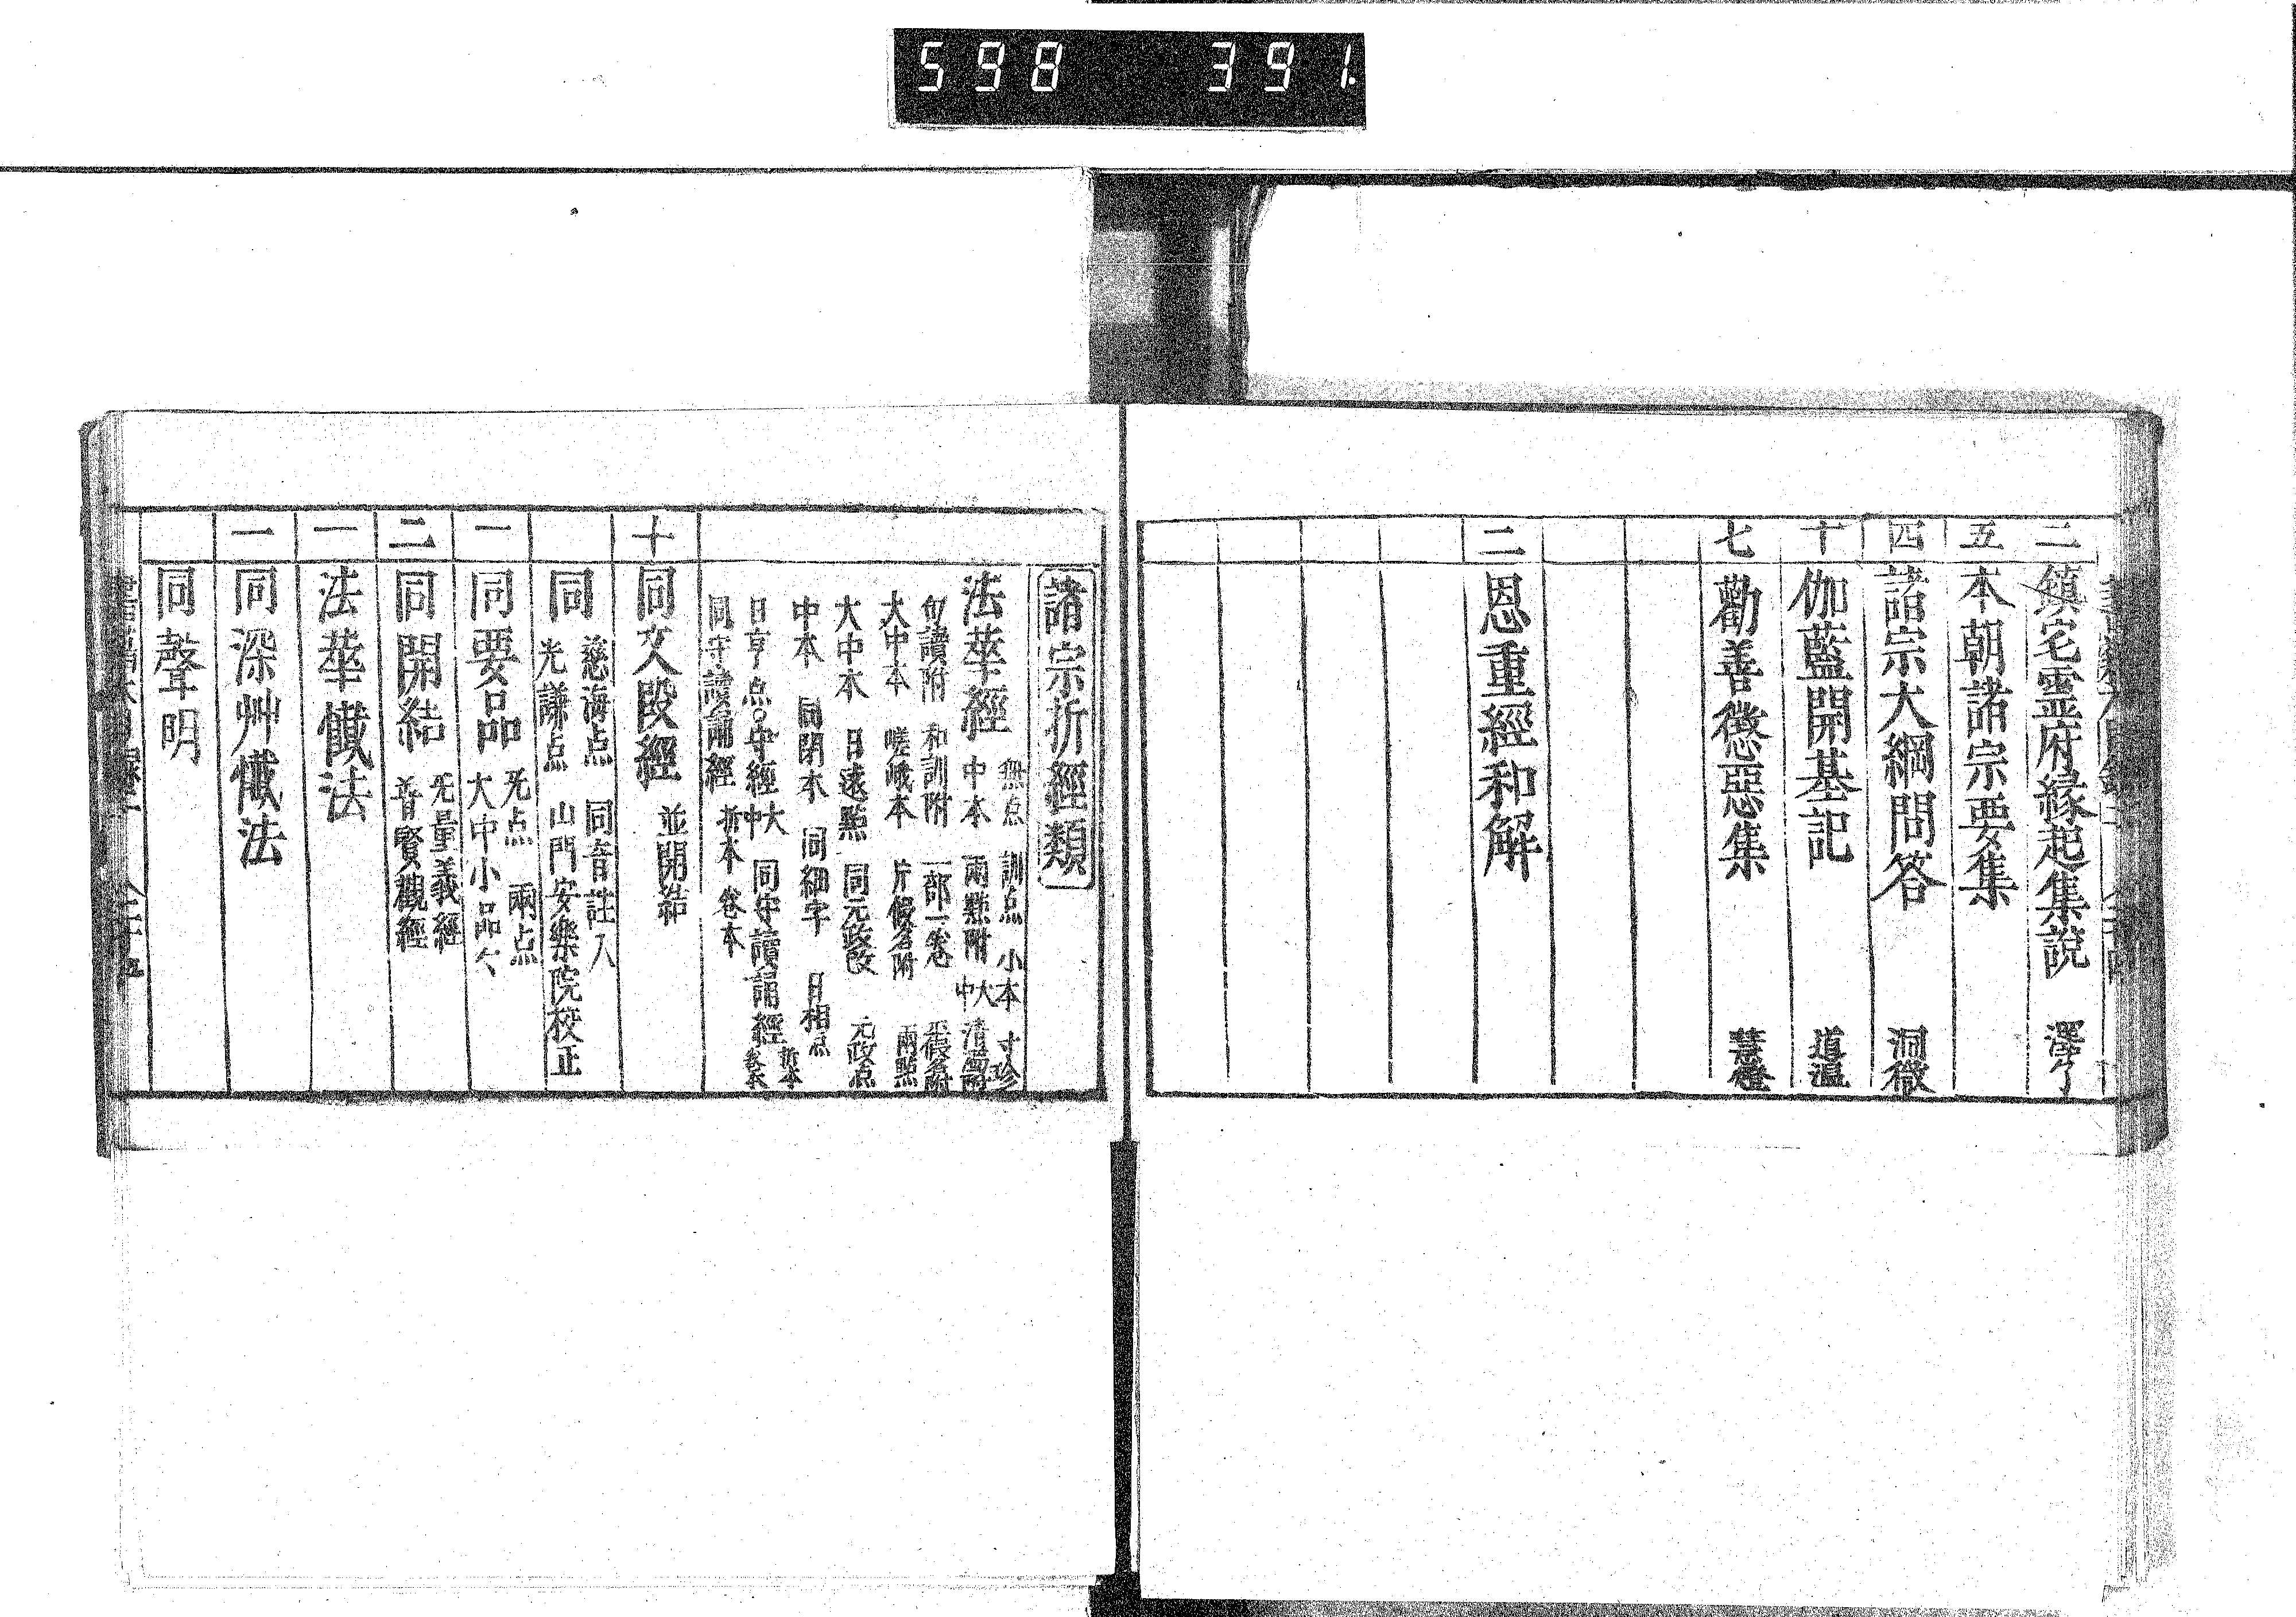 598 391.
二 鎮宅霊府縁起集説 澤了
五 本朝諸宗要集
四 諸宗大綱問答 洞微
十 伽藍開基記 道溫
七 勸善懲惡集 慧燈
二 恩重經和解
諸宗折經類
法華經 無点 訓点 小本 寸珍
中本 兩點附 大中
句讀附 和訓附 一部一卷 平假名附
大中本 嵯峨本 片假名附 兩點
大中本 日遠點 同元政改 元政点
中本 同閉本 同細字 日相点
日亨点○守經 大中 同守讀誦經 折本
同守讀誦經 折本 卷本
十 同文段經 並開結
同 慈海点 同音註入
光謙点 山門安樂院校正
一 同要品 无点 兩点
大中小品々
二 同開結 无量義經
普賢觀經
一 法華懺法
一 同深艸懺法
同聲明